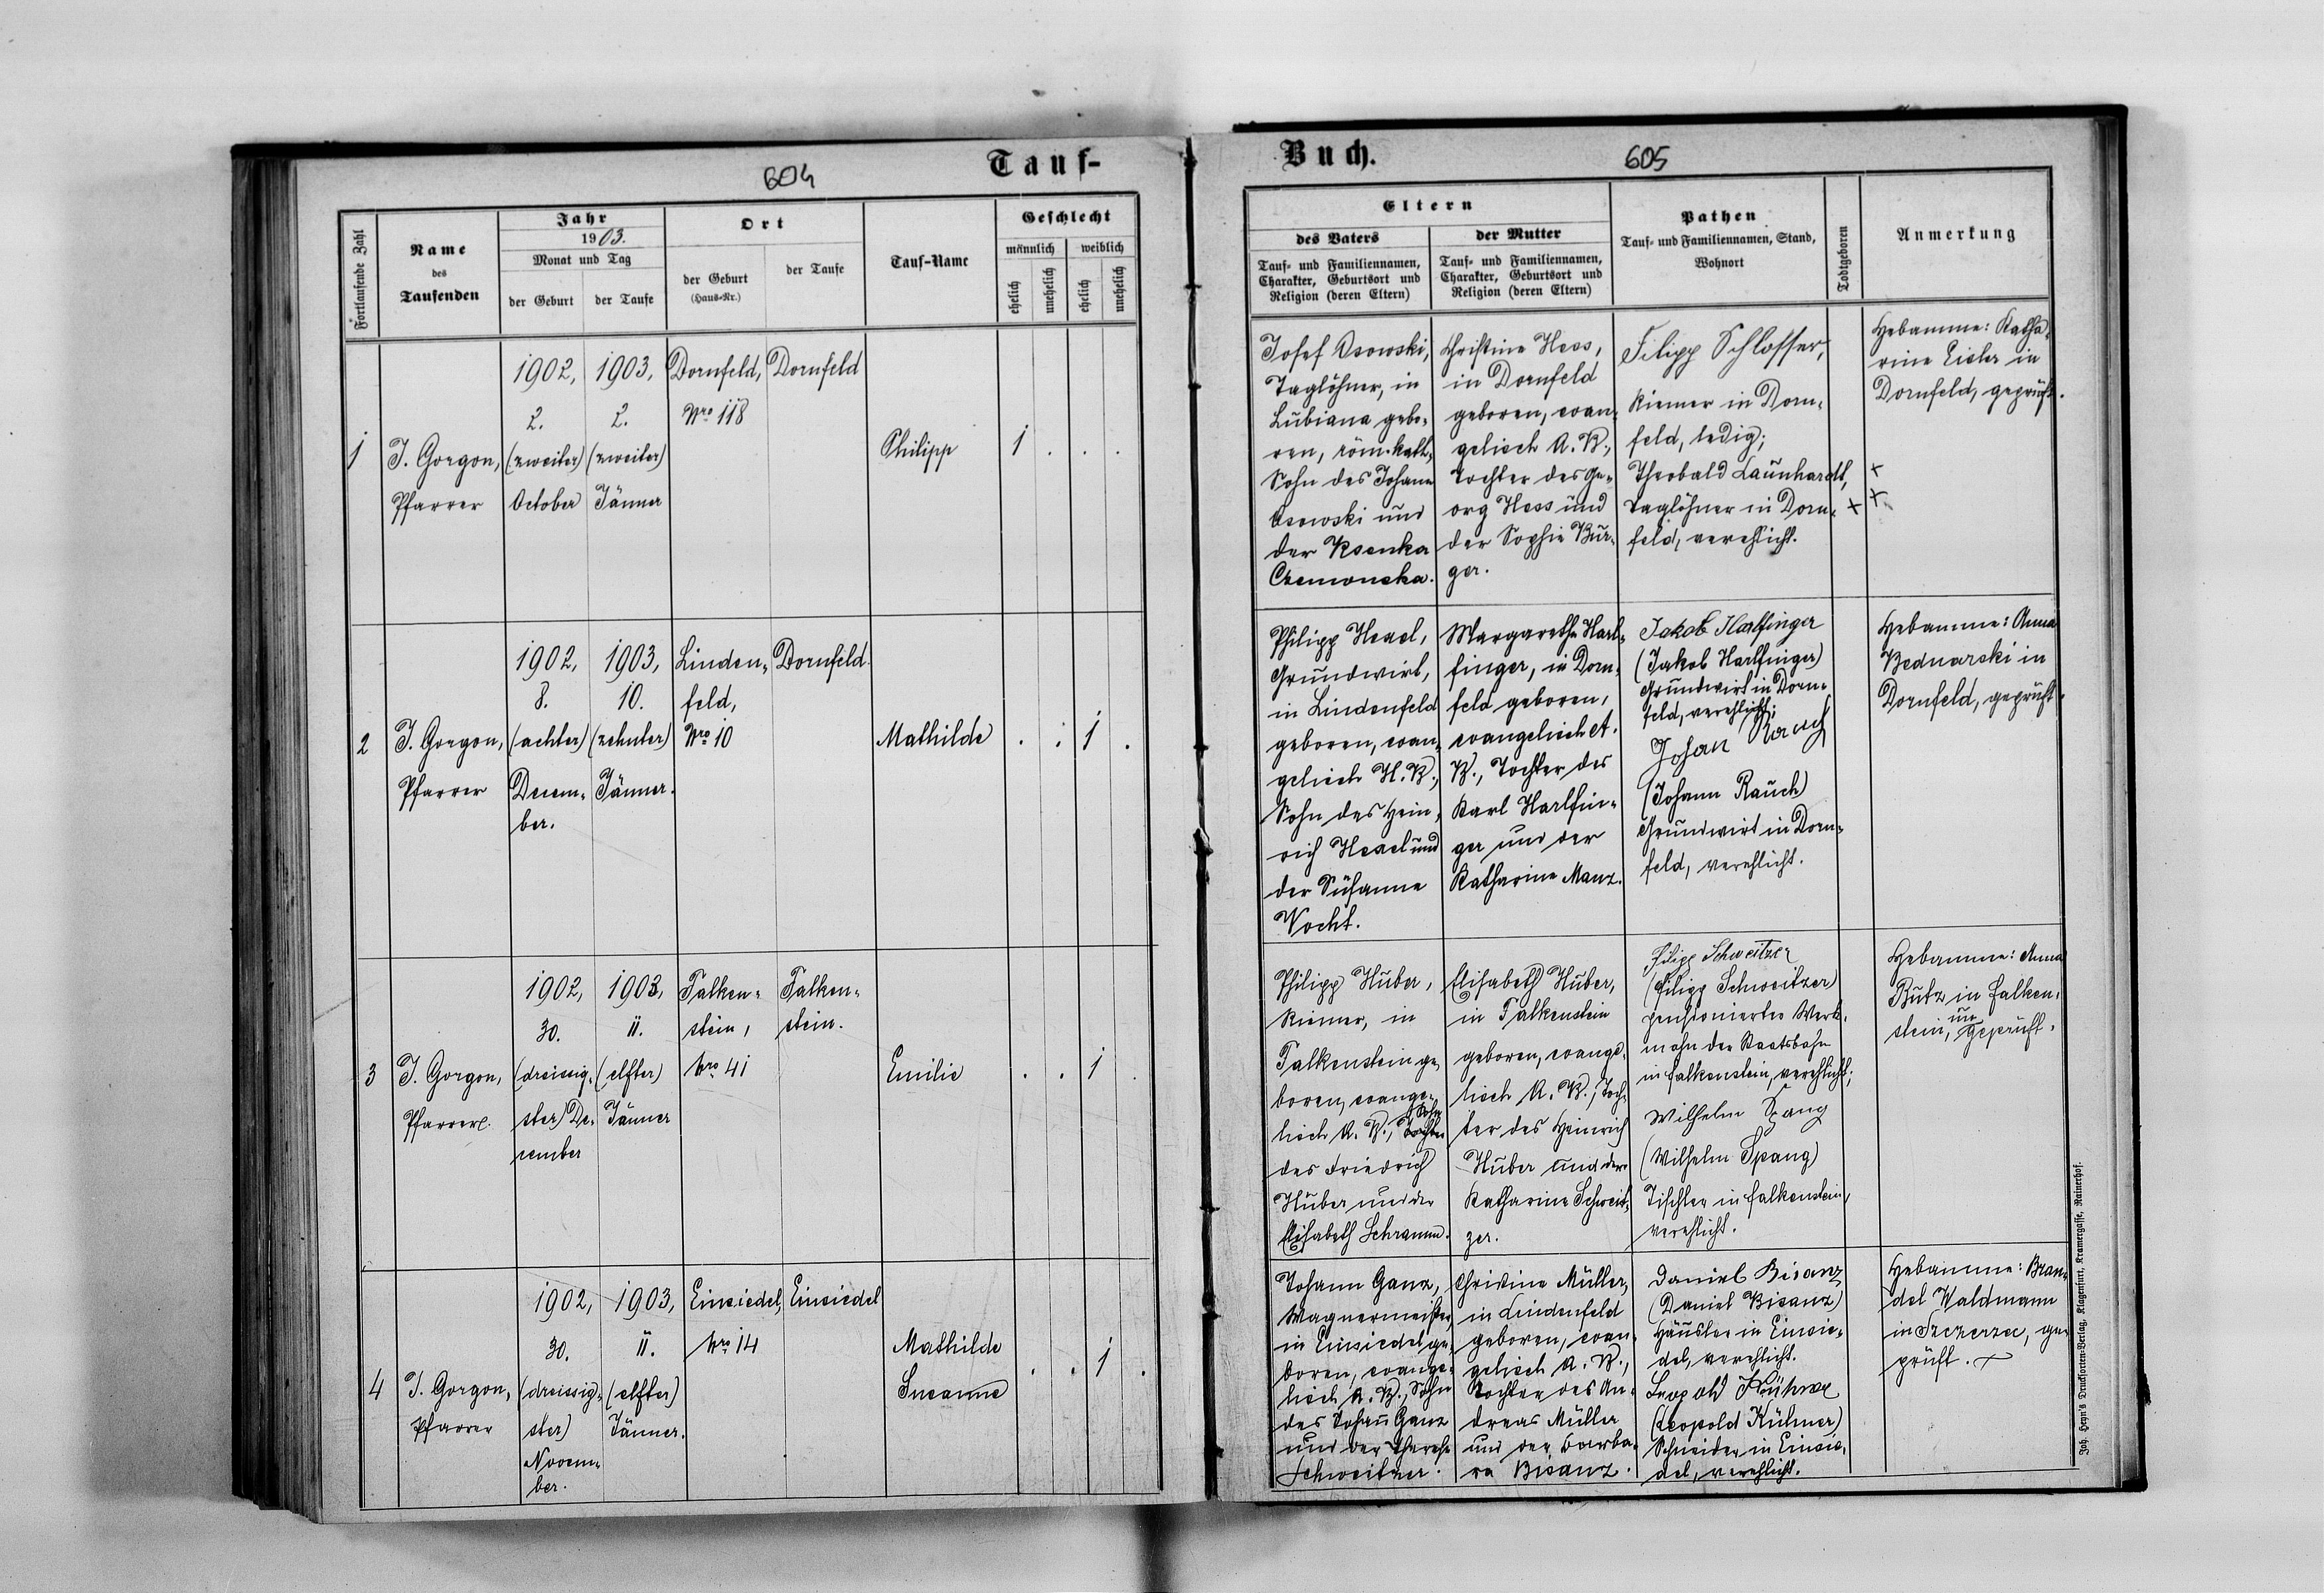 604
Tauf-
Fortlaufende Zahl
Name
des
Taufenden
Jahr
1903.
Monat und Tag
der Geburt
der Taufe
Ort
der Geburt
(Haus-Nr.)
der Taufe
Tauf-Name
Geschlecht
männlich
weiblich
ehelich
unehelich
ehelich
unehelich
1
J. Gorgon,
Pfarrer
1902,
2.
(zweiter)
October
1903,
2.
(zweiter)
Jänner
Dornfeld,
Nro 118
Dornfeld
Philipp
1 . . .
2
J. Gorgon,
Pfarrer
1902,
8.
(achter)
Decem-
ber.
1903,
10.
(zehnter)
Jänner.
Linden-
feld,
Nro 10
Dornfeld.
Mathilde
. . 1 .
3
J. Gorgon,
Pfarrer.
1902,
30.
(dreissig-
ster) De-
cember
1903,
11.
(elfter)
Jänner
Falken-
stein,
Nro 41
Falken-
stein.
Emilie
. . 1 .
4
J. Gorgon,
Pfarrer
1902,
30.
(dreissig-
ster)
Novem-
ber.
1903,
11.
(elfter)
Jänner.
Einsiedel,
Nro 14
Einsiedel
Mathilde
Susanne
. . 1 .
Buch.
605
Eltern
des Vaters
Tauf- und Familiennamen,
Charakter, Geburtsort und
Religion (deren Eltern)
der Mutter
Tauf- und Familiennamen,
Charakter, Geburtsort und
Religion (deren Eltern)
Pathen
Tauf- und Familiennamen, Stand,
Wohnort
Todtgeboren
Anmerkung
Josef Osowski,
Taglöhner, in
Lubiana gebo-
ren, röm. kath.,
Sohn des Johann
Osowski und
der Ksenka
Christine Hess,
in Dornfeld
geboren, evan-
gelisch A. B.,
Tochter des Ge-
org Hess und
der Sophie Bur-
ger.
Filipp Schlosser,
Riemer in Dorn-
feld, ledig;
Theobald Launhardt,
Taglöhner in Dorn-
feld, verehlicht.
Hebamme: Katha-
rine Eisler in
Dornfeld, geprüft.
Philipp Hexel,
Grundwirt,
in Lindenfeld
geboren, evan-
gelisch H. B.,
Sohn des Hein-
rich Hexel und
der Susanne
Vocht.
Margarethe Harl-
finger, in Dorn-
feld geboren,
evangelisch A.
B., Tochter des
Karl Harlfin-
ger und der
Katharine Manz.
Jakob Harlfinger
(Jakob Harlfinger)
Grundwirt in Dorn-
feld, verehlicht;
Johan Rauch
(Johann Rauch)
Grundwirt in Dorn-
feld, verehlicht.
Hebamme: Anna
Bednarski in
Dornfeld, geprüft.
Philipp Huber,
Riemer, in
Falkenstein ge-
boren, evange-
lisch A. B., Tochter Sohn
des Friedrich
Huber und der
Elisabeth Schramm.
Elisabeth Huber,
in Falkenstein
geboren, evange-
lisch A. B., Toch-
ter des Heinrich
Huber und der
Katharine Schweit-
zer.
Filipp Schweitzer
(Filipp Schweitzer)
pensionierter Werk-
mann der Staatsbahn
in Falkenstein, verehlicht;
Wilhelm Spang
(Wilhelm Spang)
Tischler in Falkenstein,
verehlicht.
Hebamme: Anna
Butz in Falken-
stein, ungeprüft.
Johann Ganz,
Wagnermeister
in Einsiedel ge-
boren, evange-
lisch A. B., Sohn
des Johann Ganz
und der Therese
Schweitzer.
Christine Müller,
in Lindenfeld
geboren, evan-
gelisch A. B.,
Tochter des An-
dreas Müller
und der Barba-
ra Bisanz.
Daniel Bisanz
(Daniel Bisanz)
Häusler in Einsie-
del, verehlicht.
Leopold Kühner
(Leopold Kühner)
Schneider in Einsie-
del, verehlicht.
Hebamme: Bran-
del Waldmann
in Szczerzec, ge-
prüft.
Joh. Heyn's Drucksorten-Verlag, Klagenfurt, Kramergasse, Rainerhof.